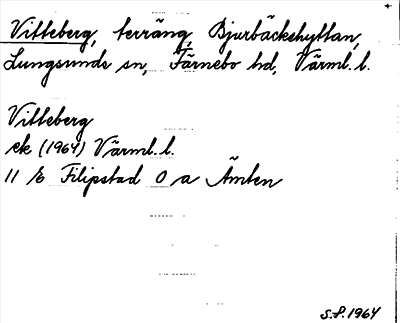 Vitteberg, terräng, Bjurbäckshyttan,
Lungsunds sn, Färnebo hd, Värml. l.
Vitteberg
ek (1964) Värml. l.
11 E Filipstad 0 a Ämten
S.P. 1964